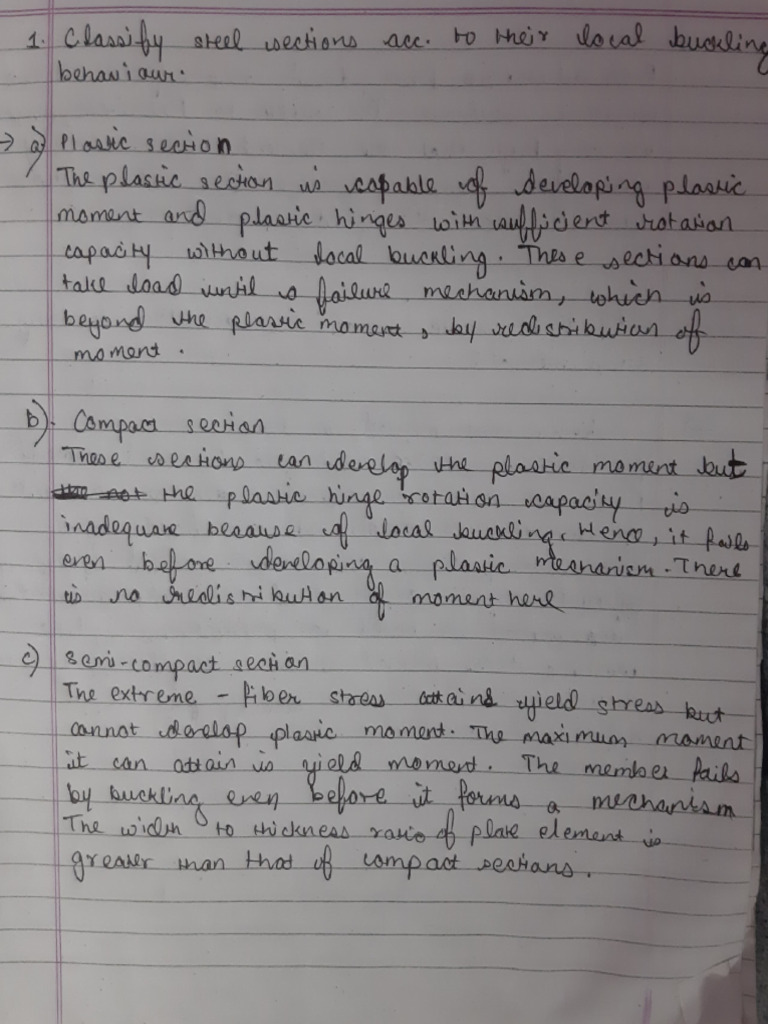 1. Classify steel sections acc. to their local buckling
behaviour.
→ a) Plastic section
The plastic section is capable of developing plastic
moment and plastic hinges with sufficient rotation
capacity without local buckling. These sections can
take load until a failure mechanism, which is
beyond the plastic moment, by redistribution of
moment.
b). Compact section
These sections can develop the plastic moment but
the plastic hinge rotation capacity is
inadequate because of local buckling. Hence, it fails
even before developing a plastic mechanism. There
is no redistribution of moment here
c) Semi-compact section
The extreme - fiber stress attains yield stress but
cannot develop plastic moment. The maximum moment
it can attain is yield moment. The member fails
by buckling even before it forms a mechanism
The width to thickness ratio of plate element is
greater than that of compact sections.